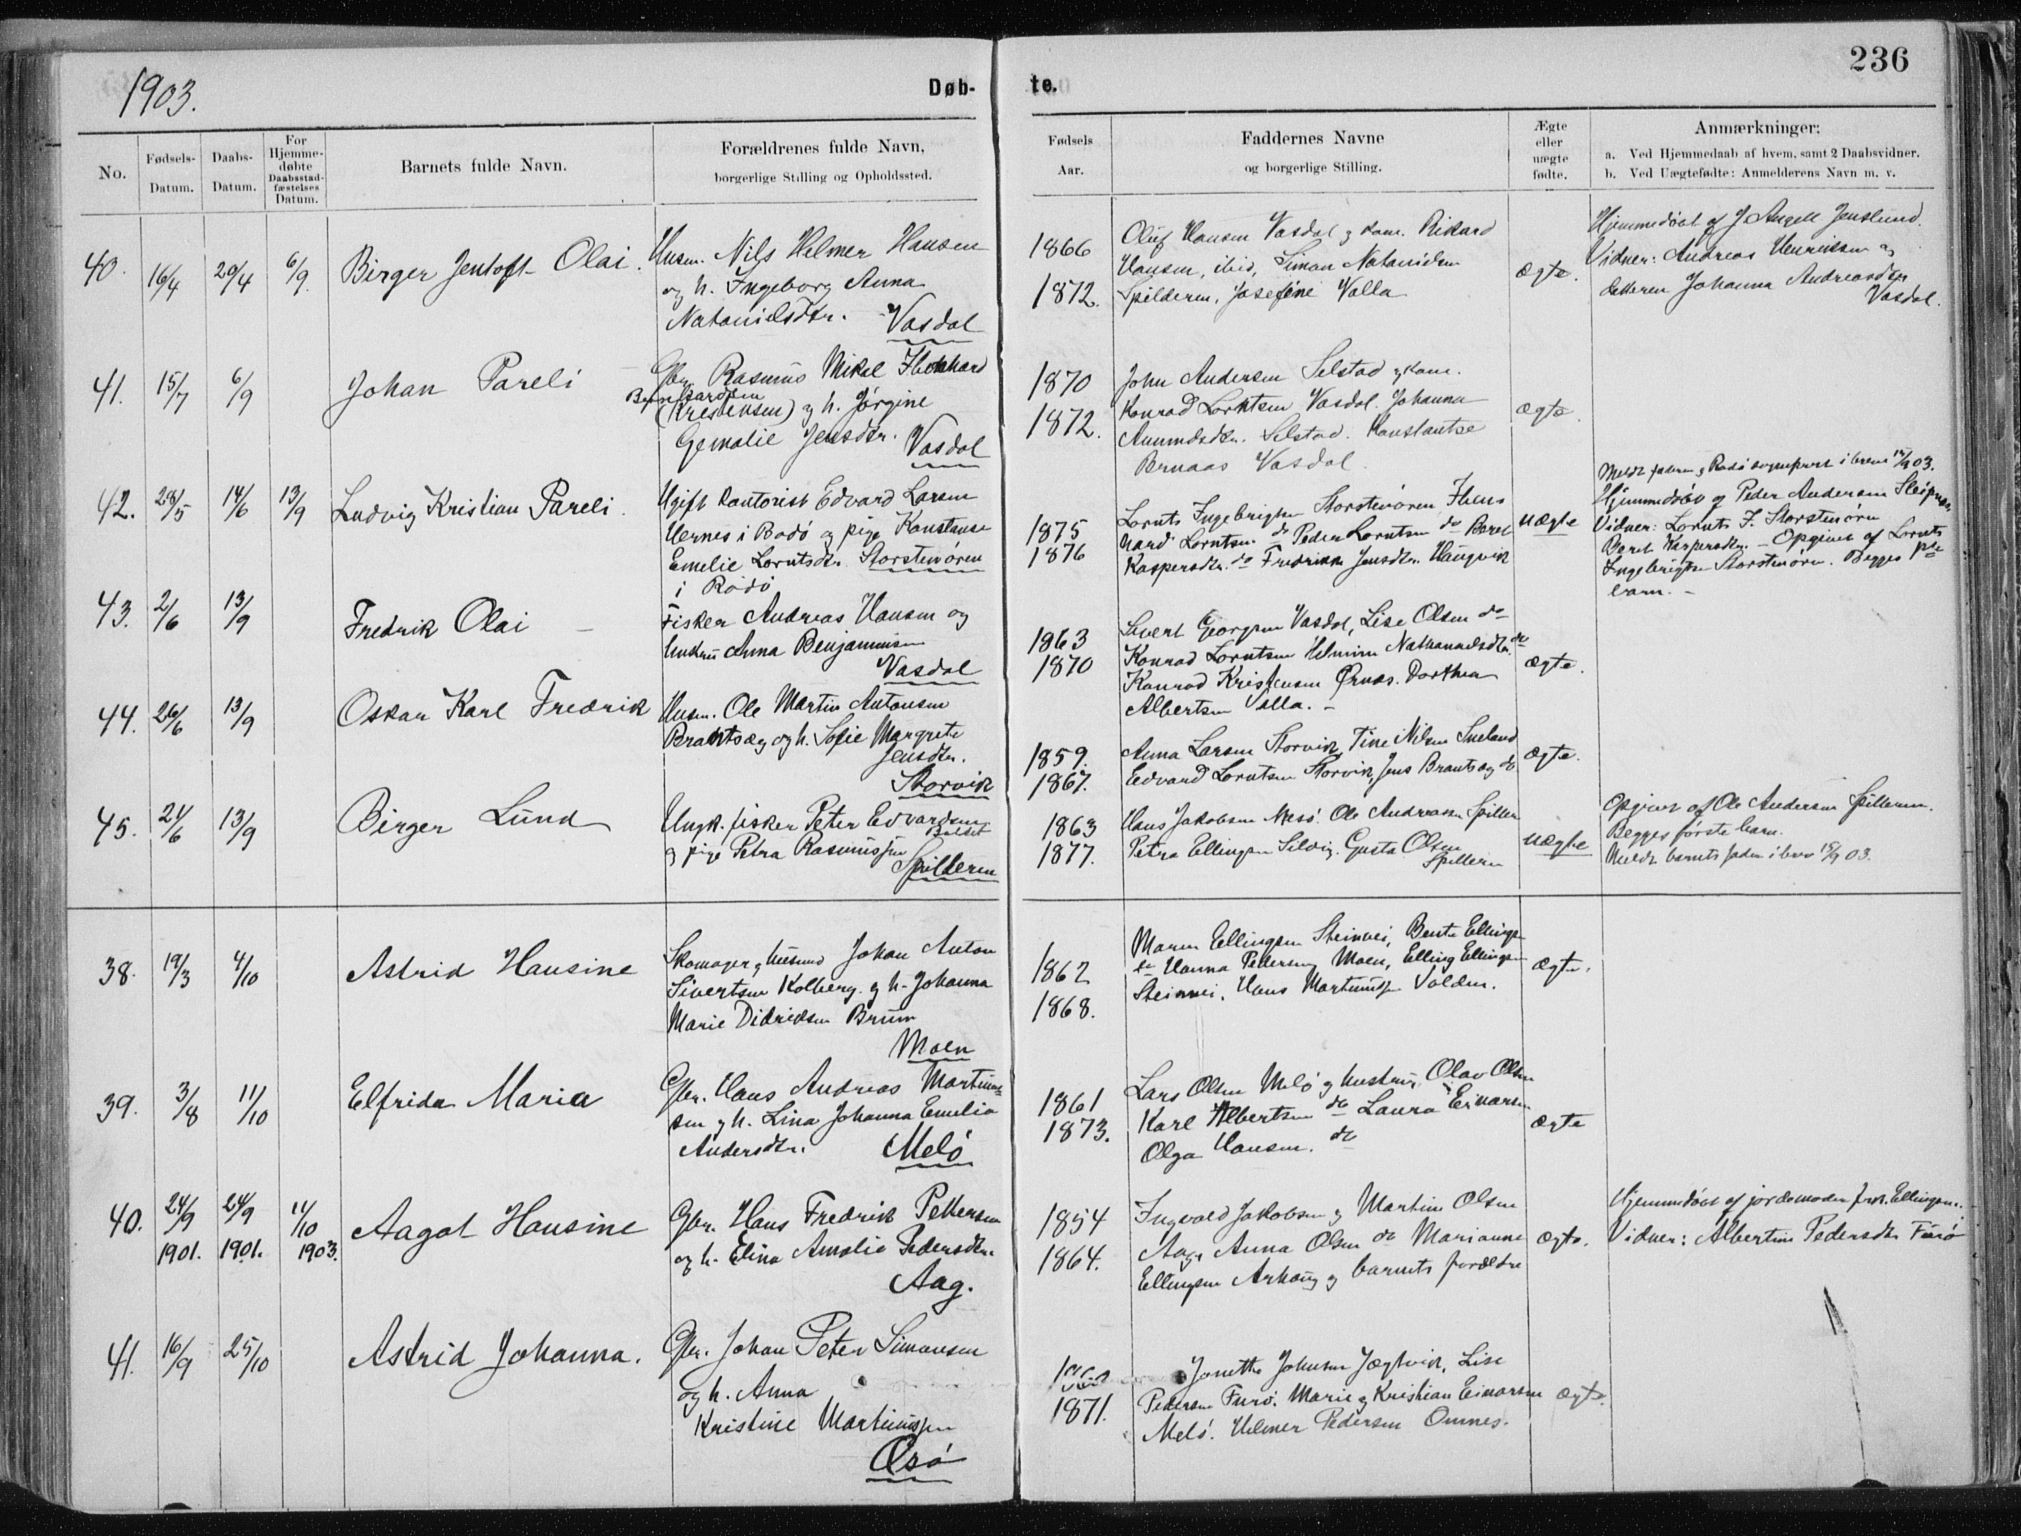 236
1903.
Døb-
te.
No.
Fødsels-
Datum.
Daabs-
Datum.
For
Hjemme-
døbte
Daabsstad-
fæstelses
Datum.
Barnets fulde Navn.
Forældrenes fulde Navn,
borgerlige Stilling og Opholdssted.
Fødsels
Aar.
Faddernes Navne
og borgerlige Stilling.
Ægte
eller
uægte
fødte.
Anmærkninger:
a. Ved Hjemmedaab af hvem, samt 2 Daabsvidner.
b. Ved Uægtefødte: Anmelderens Navn m. v.
40. 16/4 29/4 6/9. Birger Jentoft Olai.
Husm. Nils Helmer Hansen
og h. Ingeborg Anna
Natanielsdtr. Vasdal
1866
1872.
Oluf Hansen Vasdal g kone. Rikard
Hansen, ibid, Simon Natanielsen
Spilderen, Josefine Valla
ægte.
Hjemmedøbt af J. Angell Jenslund.
Vidner: Andreas Henriksen og
Johanna Andreasdtr
Vasdal.
41. 15/7 6/9 Johan Pareli
Gbr. Rasmus Mikel
(Kristensen) g h. Jørgine
Gjertsdtr. Vasdal
1870
1872.
John Andersen Selstad g kone.
Konrad Lorntsen Vasdal. Johanna
Amundsdtr. Selstad. Konstantse
Bernaas Vasdal.
ægte.
42. 28/5 14/6 13/9 Ludvig Kristian Pareli.
Ugift kontorist Edvard Larsen
Hernes i Bodø og pige Konstanse
Emelie Lorntsdtr. Storstenøren
i Rødø
1875
1876
Lornts Ingebrigtsen Storstenøren
Lorntsen do Peder Lorntsen do Beret
Kaspersdtr. do Fredrikke Jensdtr. Haugvik
uægte
Meldt faderen g Bodø sogneprest i brev 14/9 03.
Hjemmedøbt af Peder Andersen
Vidner: Lornts I. Storstenøren
Beret Kaspersdtr. - Opgivet af Lornts
Ingebrigtsen Storstenøren. Begges 1ste
barn. -
43. 2/6 13/9 Fredrik Olai
Fisker Andreas Hansen og
hustru Anna Benjaminsen
Vasdal
1863
1870
Sivert Georgsen Vasdal, Lise Olsen do
Konrad Lorntsen Helmine Nathanaelsdtr. do
Konrad Kristensen Ørnæs. Dorthea
Albertsen Valla. -
ægte.
44. 26/6 13/9 Oskar Karl Fredrik
Husm. Ole Martin Antonsen
Brantsæg og h. Sofie Margrete
Jensdtr.
Storvik
1859.
1867.
Anna Larsen Storvik, Tine Nilsen
Edvard Lorntsen Storvik, Jens Brantsæg do
ægte.
45. 21/6 13/9 Birger Lund
Ungk. fisker Peter Edvardsen
Bolset
g pige Petra Rasmussen
Spilderen
1863
1877.
Hans Jakobsen Mesø. Ole Andreasen Spilder
Petra Ellingsen Selvig. Gusta Olsen
Spilleren
uægte
Opgivet af Ole Andersen Spilleren.
Begges første barn.
Meldt barnets fader i brev 15/9 03.
38. 19/3 4/10 Astrid Hansine
Skomager g husmd Johan Anton
Sivertsen Kolberg. g h. Johanna
Marie Didriksen Bruun
Moen
1862
1868.
Maren Ellingsen Steinvei, Bente Ellingsen
do Hanna Pedersen Moen, Elling Ellingsen
Steinvei, Hans Martinussen Valden.
ægte.
39. 3/8 11/10 Elfrida Maria
Gbr. Hans Andreas Martinus-
sen g h. Lina Johanna Emelie
Andersdtr. Melø
1861
1873.
Lars Olsen Melø g hustru, Olav Olsen
Karl Albertsen do Laura Einarsen
Olga Hansen. do
ægte
40. 24/9 24/9 11/10
1901. 1901. 1903. Aagot Hansine
Gbr. Hans Fredrik Pettersen
og h. Elina Amalie Pedersdtr.
Aag.
1854
1864.
Ingvald Jakobsen g Martin Olsen
Aag. Anna Olsen do Marianne
Ellingsen Arhaug g barnets forældre
ægte.
Hjemmedøbt af jordemoder frk. Ellingsen.
Vidner: Albertine Pedersdtr Furø
41. 16/9 25/10 Astrid Johanna.
Gbr. Johan Peter Simonsen
og h. Anna
Kristine Martinussen
Æsø
1871.
Jonette Johnsen Jægtvik, Lise
Pedersen Furø. Marie g Kristian Einarsen
Melø. Helmer Pedersen Omnes.
ægte.